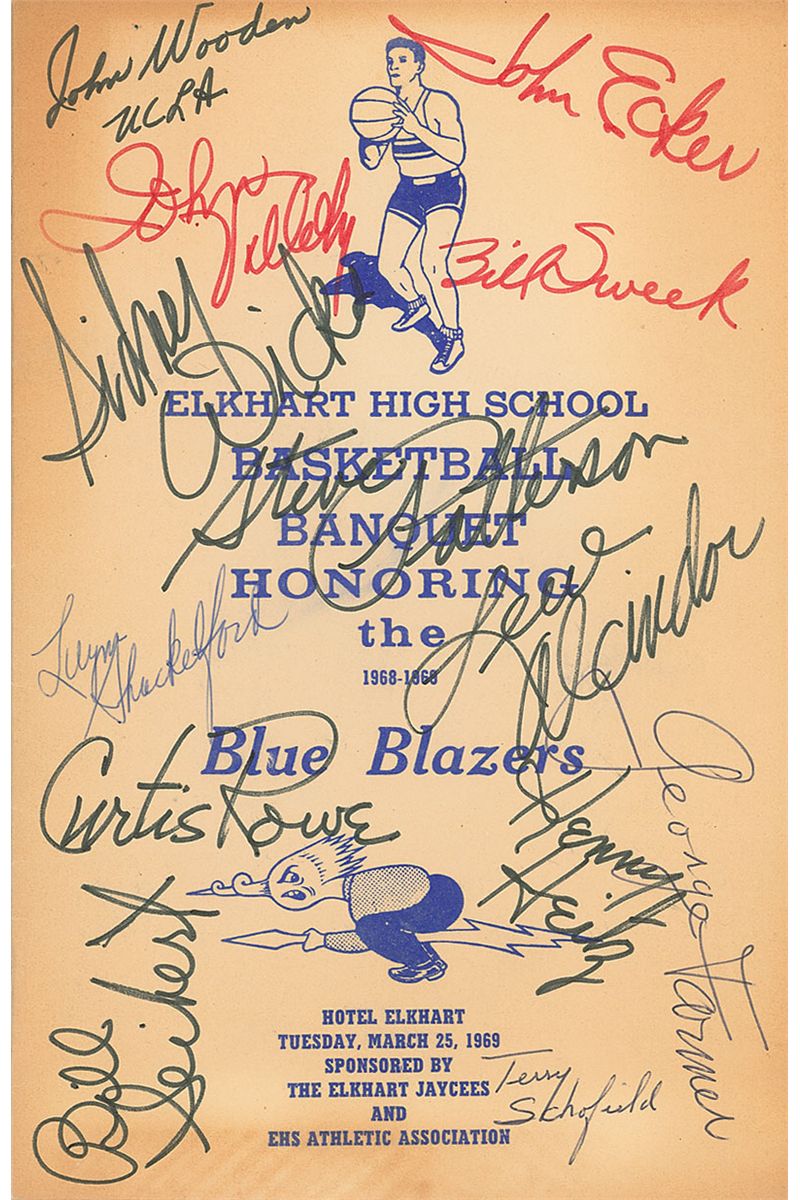 John Wooden
UCLA
John Ecker
John Vallely
Bill Sweek
Sidney Wicks
ELKHART HIGH SCHOOL
BASKETBALL
Steve Patterson
BANQUET
HONORING
the
Lew Alcindor
Lynn
Shackelford
1968-1969
Blue Blazers
Curtis Rowe
Kenny
Heitz
George Farmer
Bill Seibert
HOTEL ELKHART
TUESDAY, MARCH 25, 1969
SPONSORED BY
THE ELKHART JAYCEES
AND
EHS ATHLETIC ASSOCIATION
Terry
Schofield